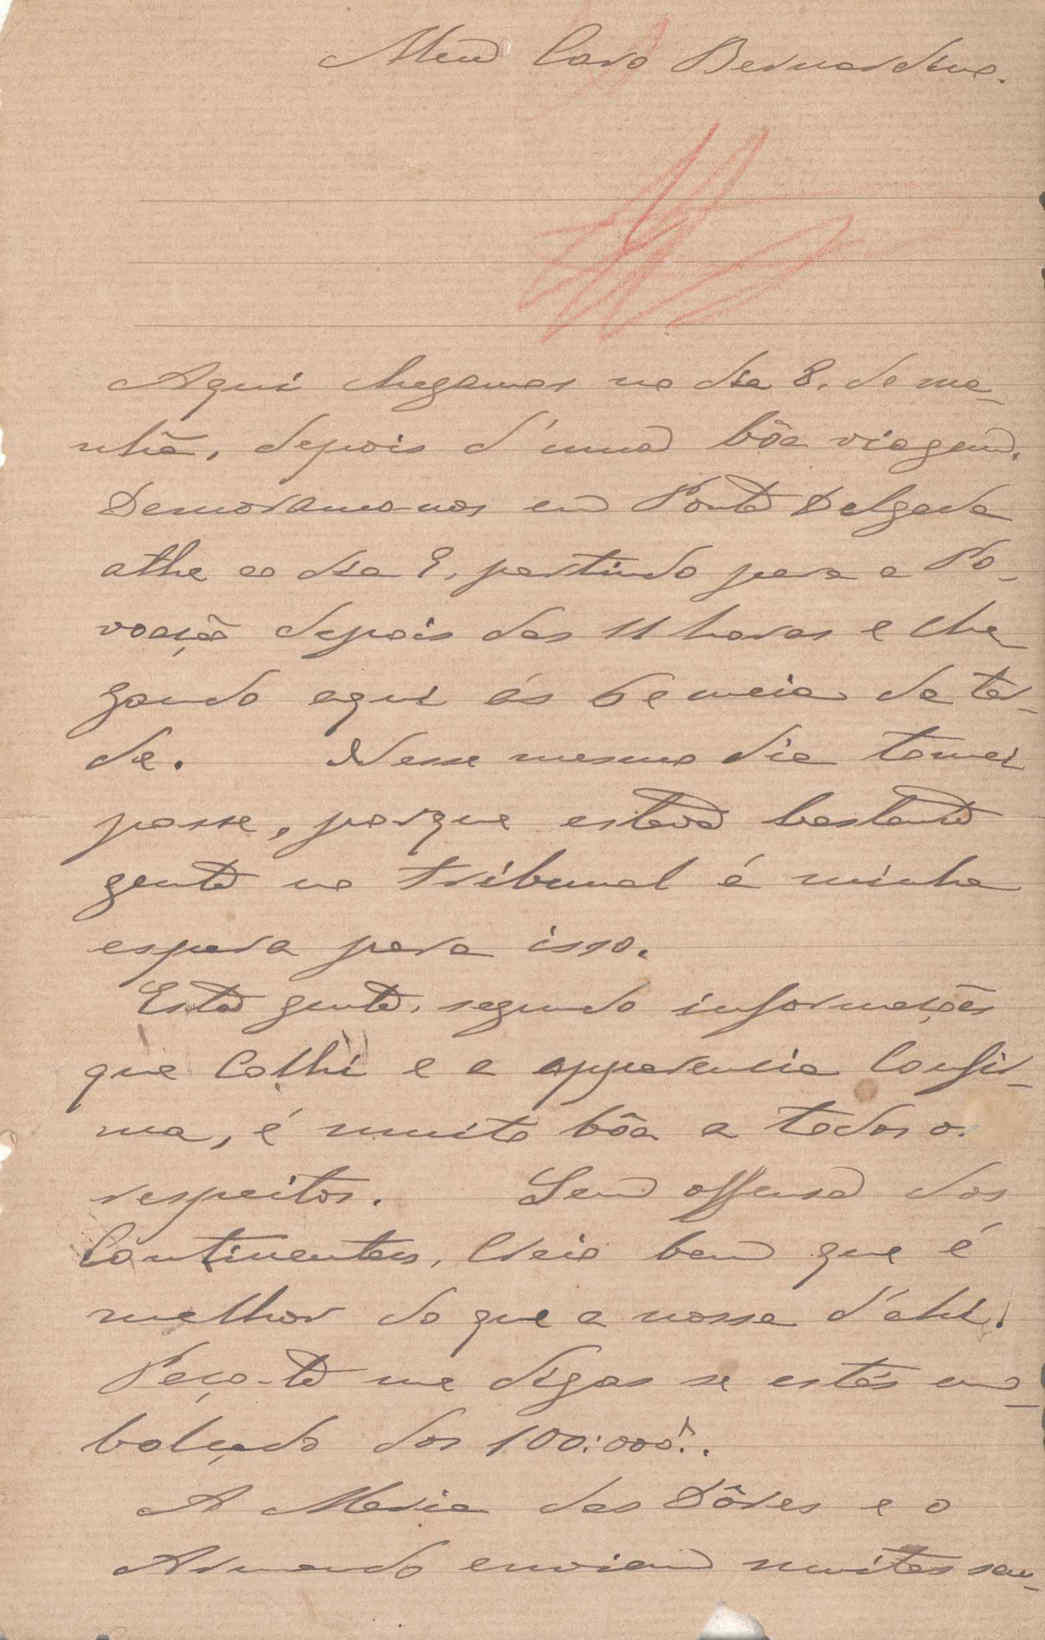 Meu Caro Bernardino.
Aqui chegamos no dia 8, de ma-
nhã, depois d'uma bôa viagem.
Demoramo-nos em Ponta Delgada
athe ao dia 9, partindo para a Po-
voação depois das 11 horas e che
gando aqui ás 6 e meia da tar-
de. Nesse mesmo dia tomei
posse, porque estava bastante
gente no tribunal á minha
espera para isso.
Esta gente, segundo informações
que colhi e a apparencia confir-
ma, é muito bôa a todos o.
respeitos. Sem offensa dos
Continentaes, creio bem que é
melhor do que a nossa d'ahi.
Peço-te me digas se estás em-
bolçado dos 100:000
A Maria das Dôres e o
Armando enviam muitas sau-